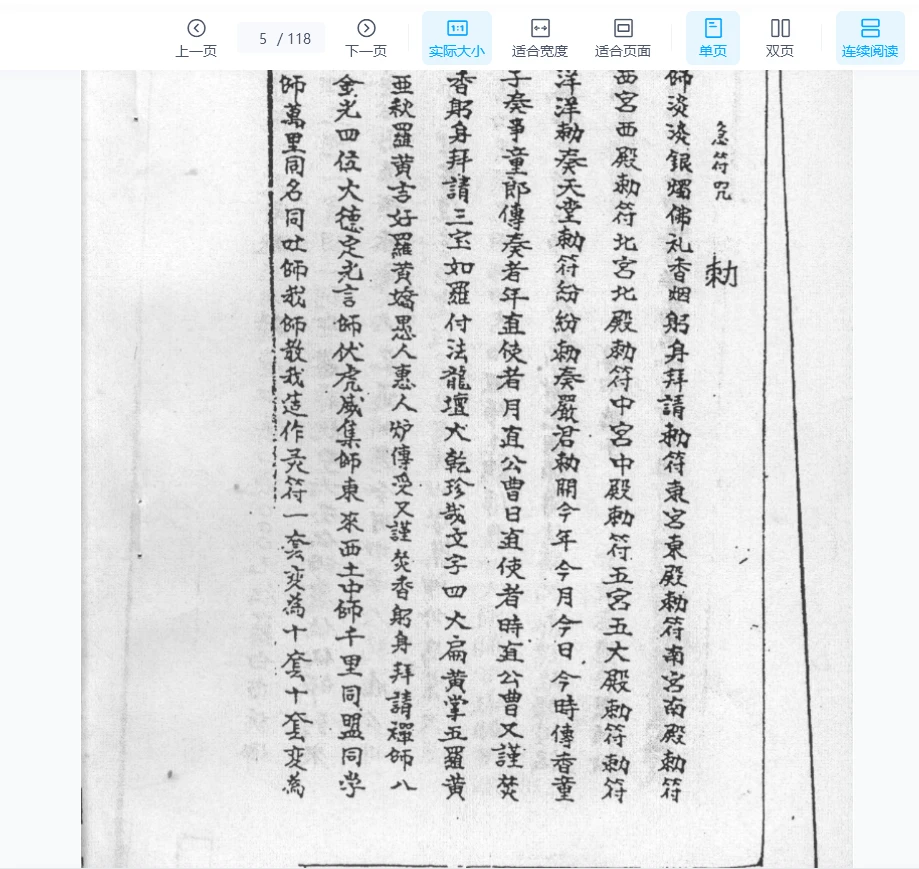 上一页
5 / 118
下一页
1:1
实际大小
适合宽度
适合页面
单页
双页
连续阅读
急符咒
勅
師淡淡銀燭佛礼香烟躬身拜請勅符東宮東殿勅符南宮南殿勅符
西宮西殿勅符北宮北殿勅符中宮中殿勅符五宮五大殿勅符勅符
洋洋勅奏天堂勅符紛紛勅奏嚴君勅開今年今月今日今時傳香童
子奏事童郎傳奏若年直使者月直公曹日直使者時直公曹又謹焚
香躬身拜請三宝如羅付法龍壇犬乾珍哉文字四大扁黄掌五羅黄
亜秋羅黄吉好羅黄嬌思人惠人炉傳受又謹焚香躬身拜請禪師八
金光四位大德定光言師伏虎威集師東來西土中師千里同盟同学
師萬里同名同吐師我師教我造作灵符一套変為十套十套変為